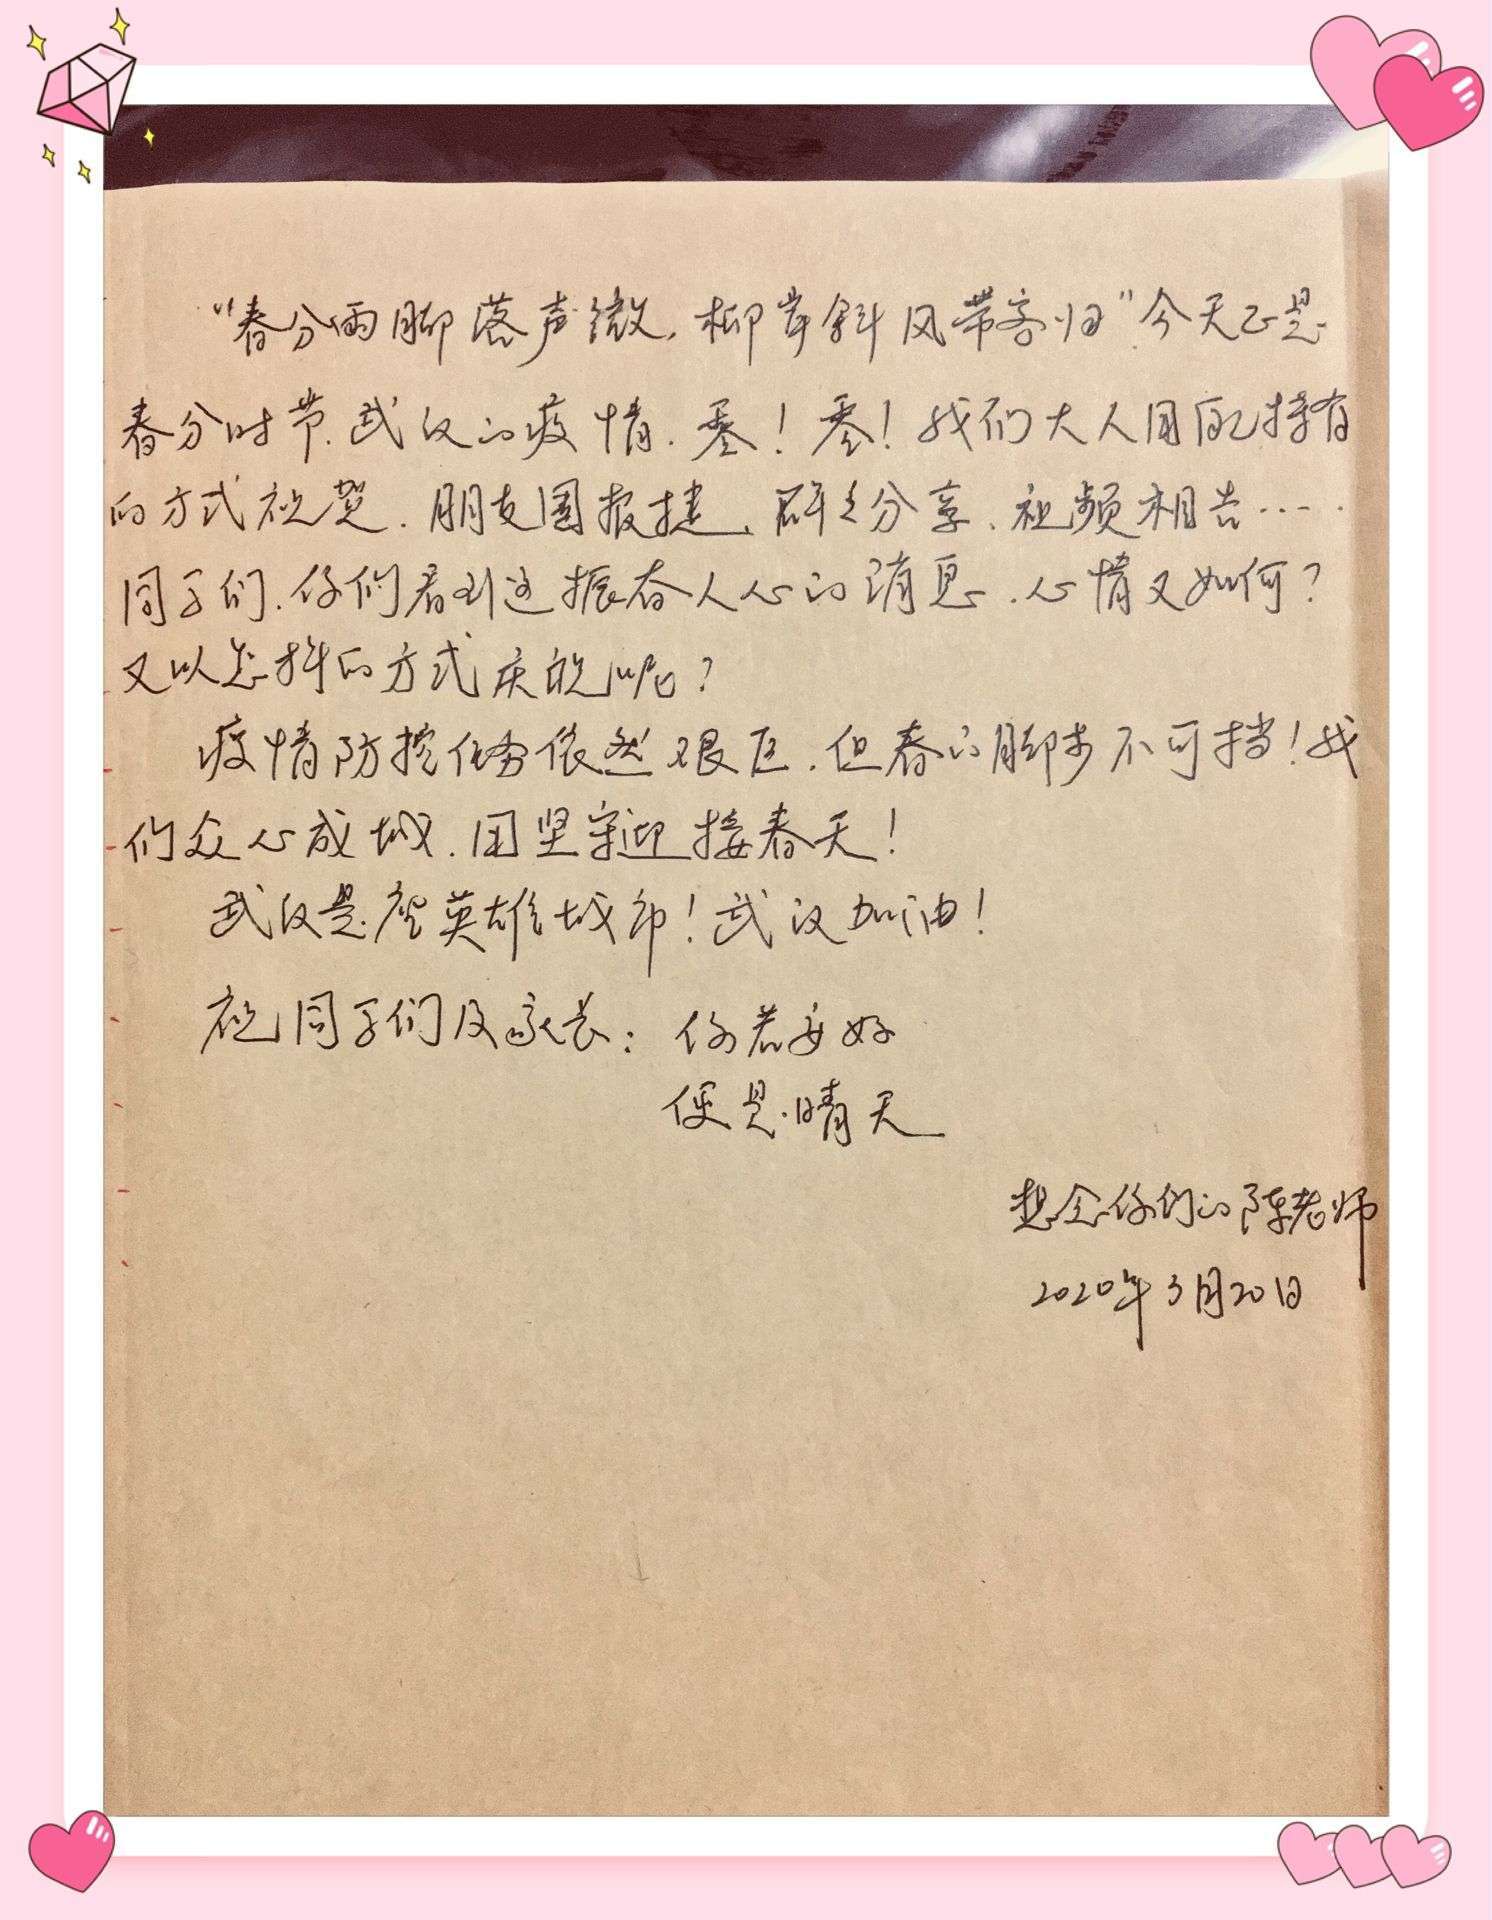 “春分雨脚落声微，柳岸斜风带客归”今天正是
春分时节，武汉的疫情，零！零！我们大人用自己持有
的方式祝贺，朋友圈报捷，群之分享，视频相告……
同学们，你们看到这振奋人心的消息，心情又如何？
又以怎样的方式庆祝呢？
疫情防控任务依然艰巨，但春的脚步不可挡！我
们众心成城，用坚守迎接春天！
武汉是座英雄城市！武汉加油！
祝同学们及家长：你若安好
便是晴天
想念你们的陈老师
2020年3月20日